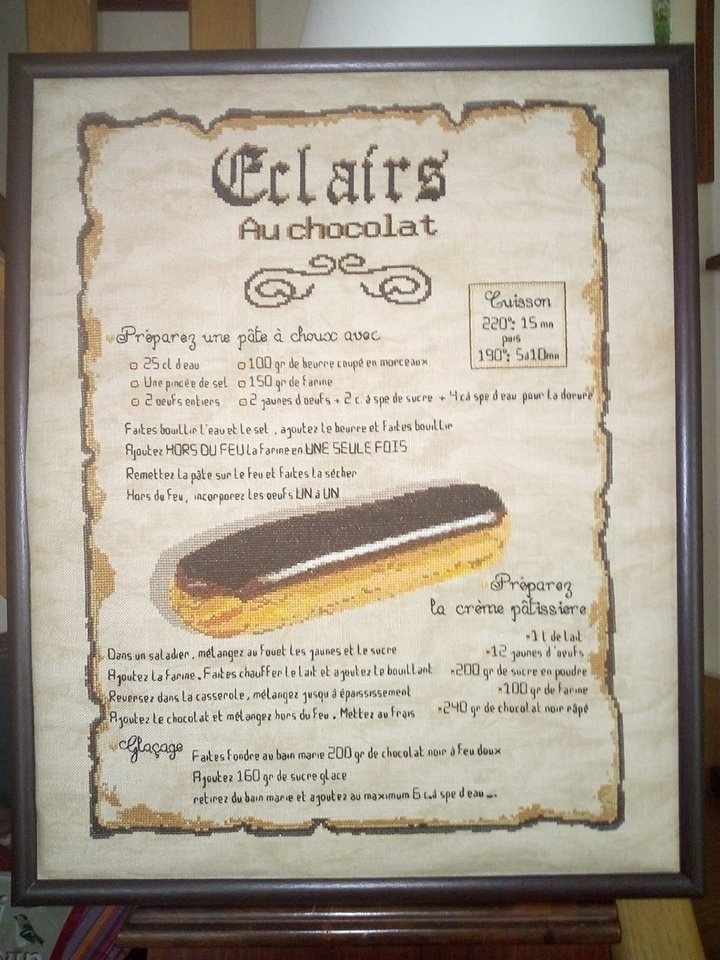 Eclairs
Au chocolat
Cuisson
220°: 15 mn
puis
190°: 5à10mn
Préparez une pâte à choux avec
25 cl d'eau
100 gr de beurre coupé en morceaux
Une pincée de sel
150 gr de farine
2 oeufs entiers
2 jaunes d'oeufs + 2 c. à spe de sucre + 4 c à spe d'eau pour la dorure
Faites bouillir l'eau et le sel , ajoutez le beurre et faites bouillir
Ajoutez HORS DU FEU la farine en UNE SEULE FOIS
Remettez la pâte sur le feu et faites la sécher
Hors du feu, incorporez les oeufs UN à UN
Préparez
la crème pâtissiere
1 l de lait
12 jaunes d'oeufs
200 gr de sucre en poudre
100 gr de farine
240 gr de chocolat noir râpé
Dans un saladier, mélangez au fouet les jaunes et le sucre
Ajoutez la farine. Faites chauffer le lait et ajoutez le bouillant
Reversez dans la casserole, mélangez jusqu à épaississement
Ajoutez le chocolat et mélangez hors du feu . Mettez au frais
Glaçage
Faites fondre au bain marie 200 gr de chocolat noir à feu doux
Ajoutez 160 gr de sucre glace
retirez du bain marie et ajoutez au maximum 6 c.à spe d'eau ...